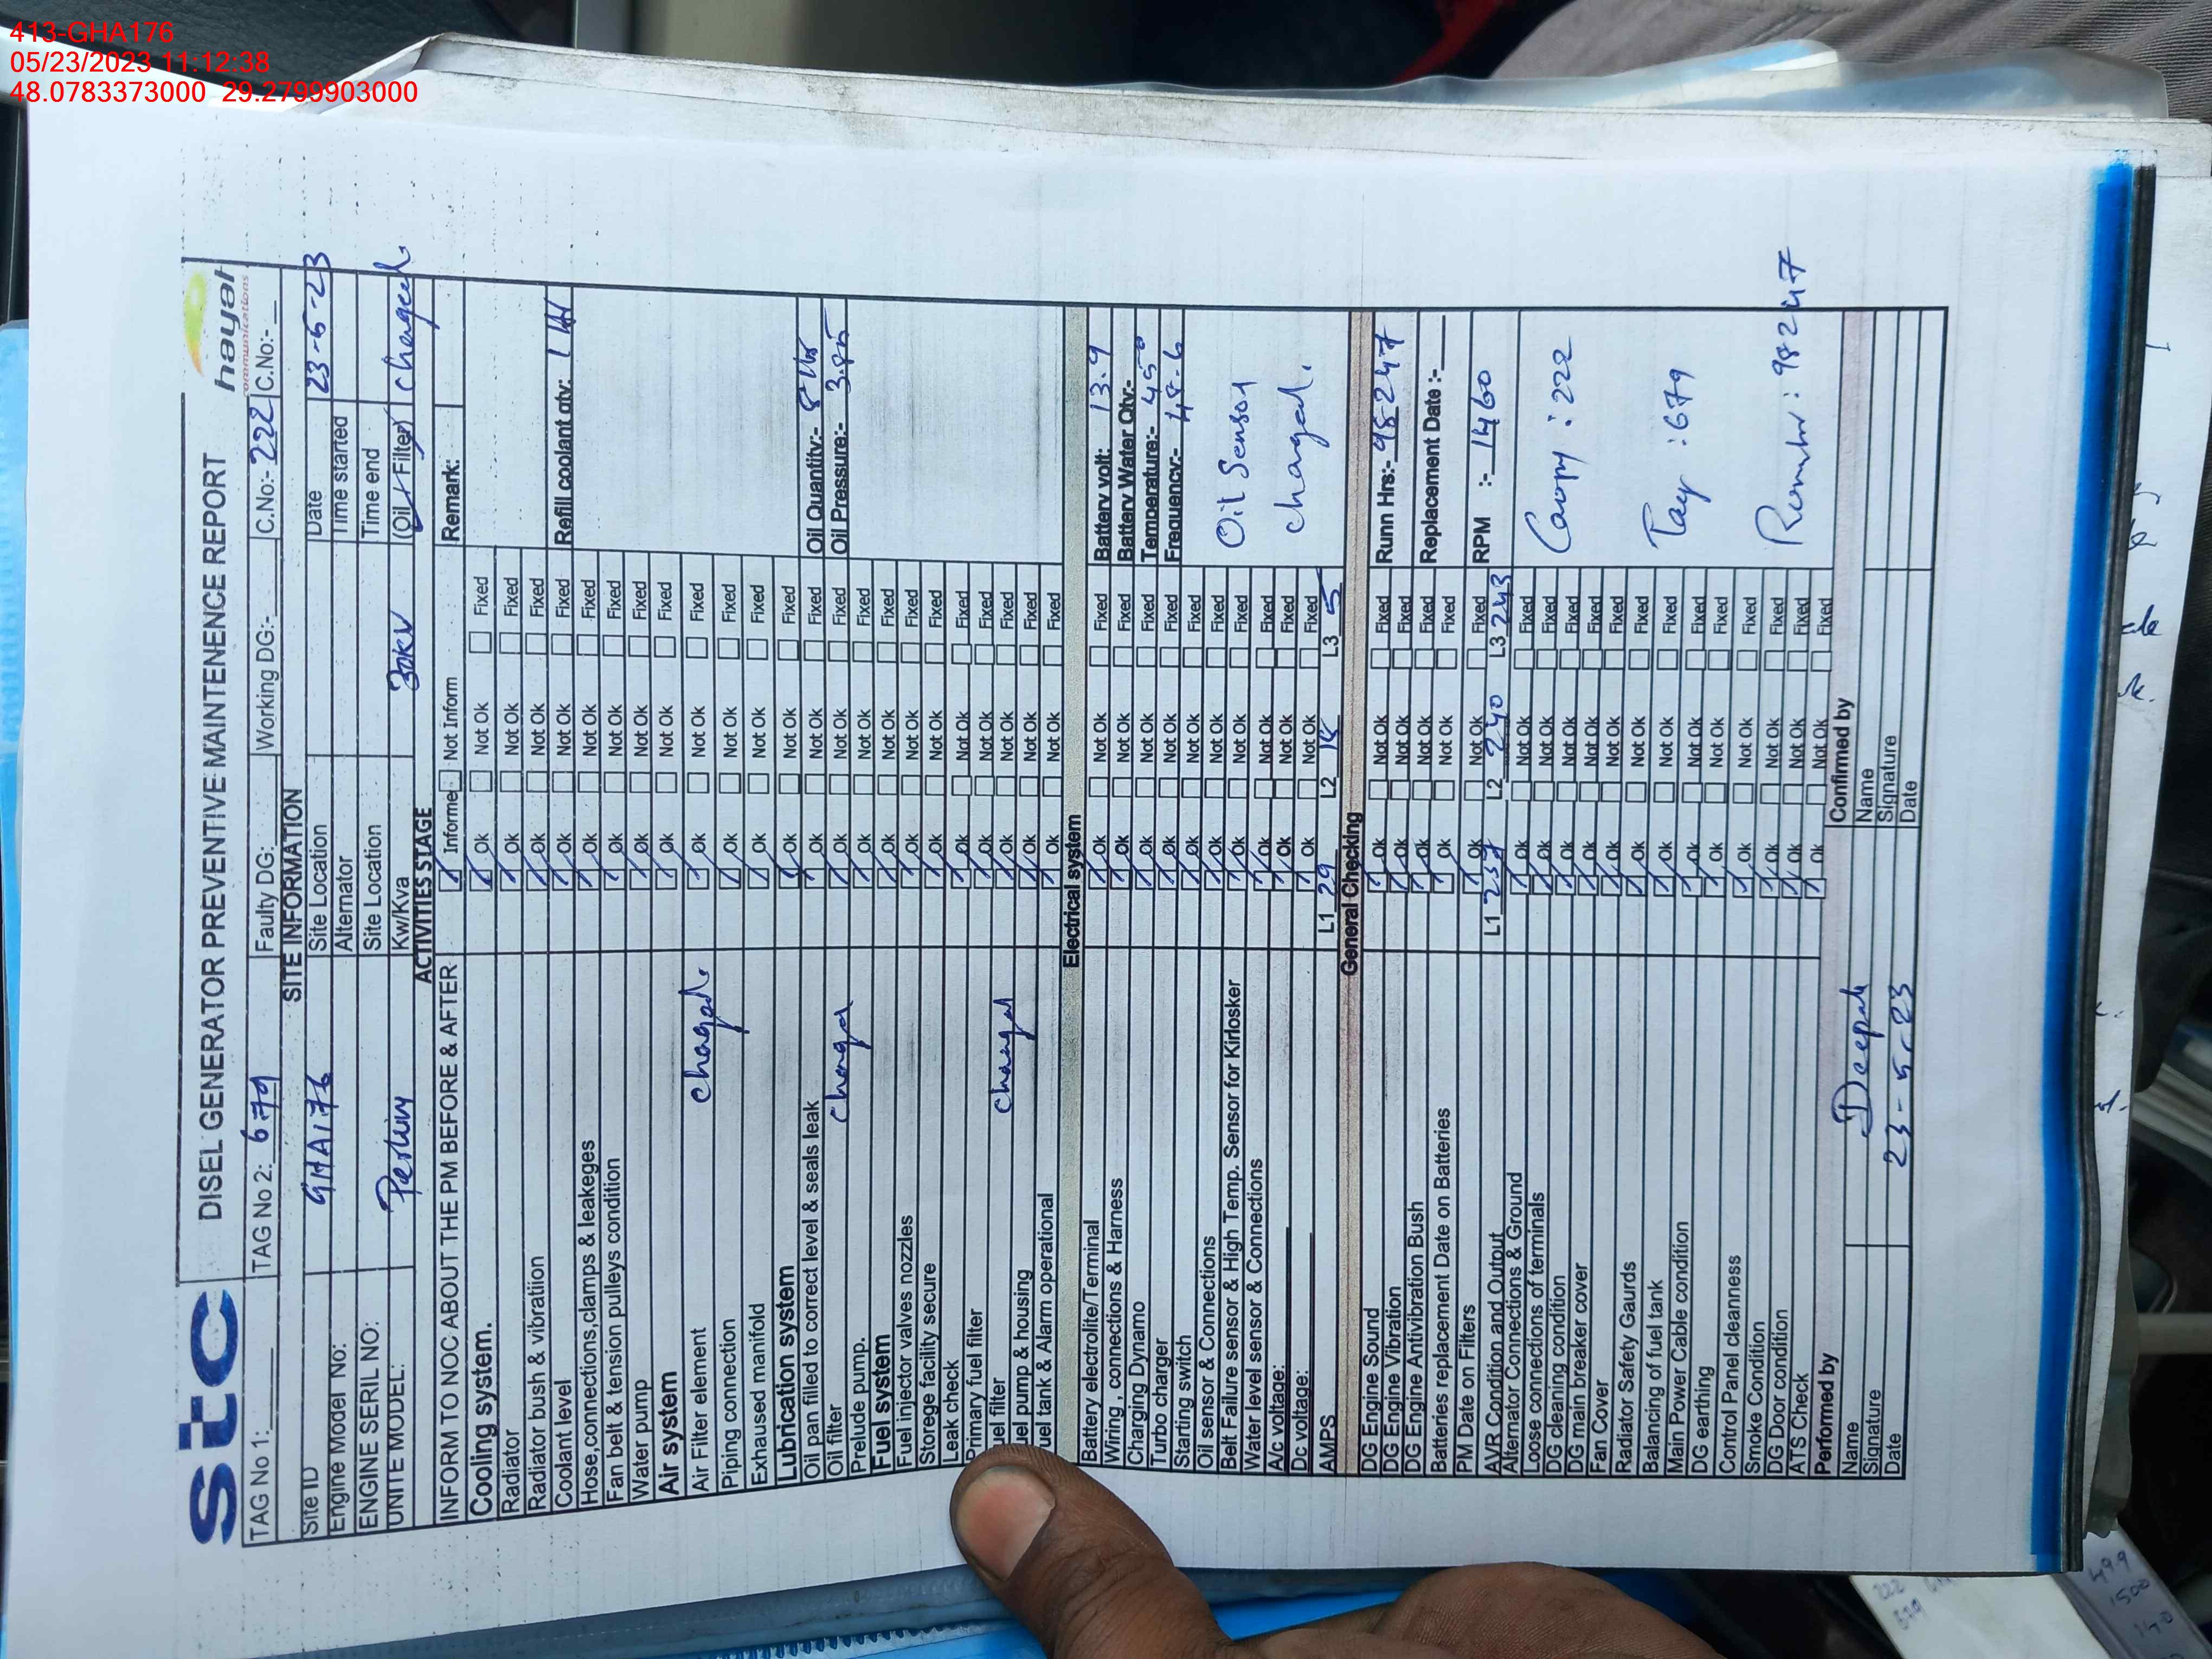 413-GHA176
05/23/2023 11:12:38
48.0783373000 29.2799903000
stc
DISEL GENERATOR PREVENTIVE MAINTENENCE REPORT
hayat
communications
TAG No 1: TAG No 2: 679 Faulty DG: Working DG:- C.No:- 222 C.No:-
SITE INFORMATION
Site ID GHA176 Site Location Date 23-5-23
Engine Model No: Alternator Time started
ENGINE SERIL NO: Site Location Time end
UNITE MODEL: Kw/Kva 30KV (Oil Filter) changed
ACTIVITIES STAGE
INFORM TO NOC ABOUT THE PM BEFORE & AFTER Informe Not Inform Remark:
Cooling system. Ok Not Ok Fixed
Radiator Ok Not Ok Fixed
Radiator bush & vibration Ok Not Ok Fixed
Coolant level Ok Not Ok Fixed Refill coolant qty:
Hose,connections,clamps & leakeges Ok Not Ok Fixed
Fan belt & tension pulleys condition Ok Not Ok Fixed
Water pump Ok Not Ok Fixed
Air system Ok Not Ok Fixed
Air Filter element changed Ok Not Ok Fixed
Piping connection Ok Not Ok Fixed
Exhaused manifold Ok Not Ok Fixed
Lubrication system Ok Not Ok Fixed
Oil pan filled to correct level & seals leak Ok Not Ok Fixed Oil Quantity:- 8 Ltr
Oil filter changed Ok Not Ok Fixed Oil Pressure:- 3.85
Prelude pump. Ok Not Ok Fixed
Fuel system Ok Not Ok Fixed
Fuel injector valves nozzles Ok Not Ok Fixed
Storege facility secure Ok Not Ok Fixed
Leak check Ok Not Ok Fixed
Primary fuel filter Ok Not Ok Fixed
uel filter changed Ok Not Ok Fixed
uel pump & housing Ok Not Ok Fixed
uel tank & Alarm operational Ok Not Ok Fixed
Electrical system
Battery electrolite/Terminal Ok Not Ok Fixed Battery volt: 13.9
Wiring , connections & Harness Ok Not Ok Fixed Battery Water Qty:-
Charging Dynamo Ok Not Ok Fixed Temperature:- 45°
Turbo charger Ok Not Ok Fixed Frequency:- 48.6
Starting switch Ok Not Ok Fixed
Oil sensor & Connections Ok Not Ok Fixed Oil Sensor
Belt Failure sensor & High Temp. Sensor for Kirlosker Ok Not Ok Fixed
Water level sensor & Connections Ok Not Ok Fixed changed.
A/c voltage: Ok Not Ok Fixed
Dc voltage: Ok Not Ok Fixed
AMPS L1 29 L2 18 L3 5
General Checking
DG Engine Sound Ok Not Ok Fixed Runn Hrs:- 98247
DG Engine Vibration Ok Not Ok Fixed
DG Engine Antivibration Bush Ok Not Ok Fixed Replacement Date :-
Batteries replacement Date on Batteries Ok Not Ok Fixed
PM Date on Filters Ok Not Ok Fixed RPM :- 1460
AVR Condition and Output L1 237 L2 240 L3 243
Alternator Connections & Ground Ok Not Ok Fixed
Loose connections of terminals Ok Not Ok Fixed Canopy : 222
DG cleaning condition Ok Not Ok Fixed
DG main breaker cover Ok Not Ok Fixed
Fan Cover Ok Not Ok Fixed
Radiator Safety Gaurds Ok Not Ok Fixed
Balancing of fuel tank Ok Not Ok Fixed Tag : 679
Main Power Cable condition Ok Not Ok Fixed
DG earthing Ok Not Ok Fixed
Control Panel cleanness Ok Not Ok Fixed
Smoke Condition Ok Not Ok Fixed : 98247
DG Door condition Ok Not Ok Fixed
ATS Check Ok Not Ok Fixed
Performed by Confirmed by
Name Deepak Name
Signature Signature
Date 23-5-23 Date